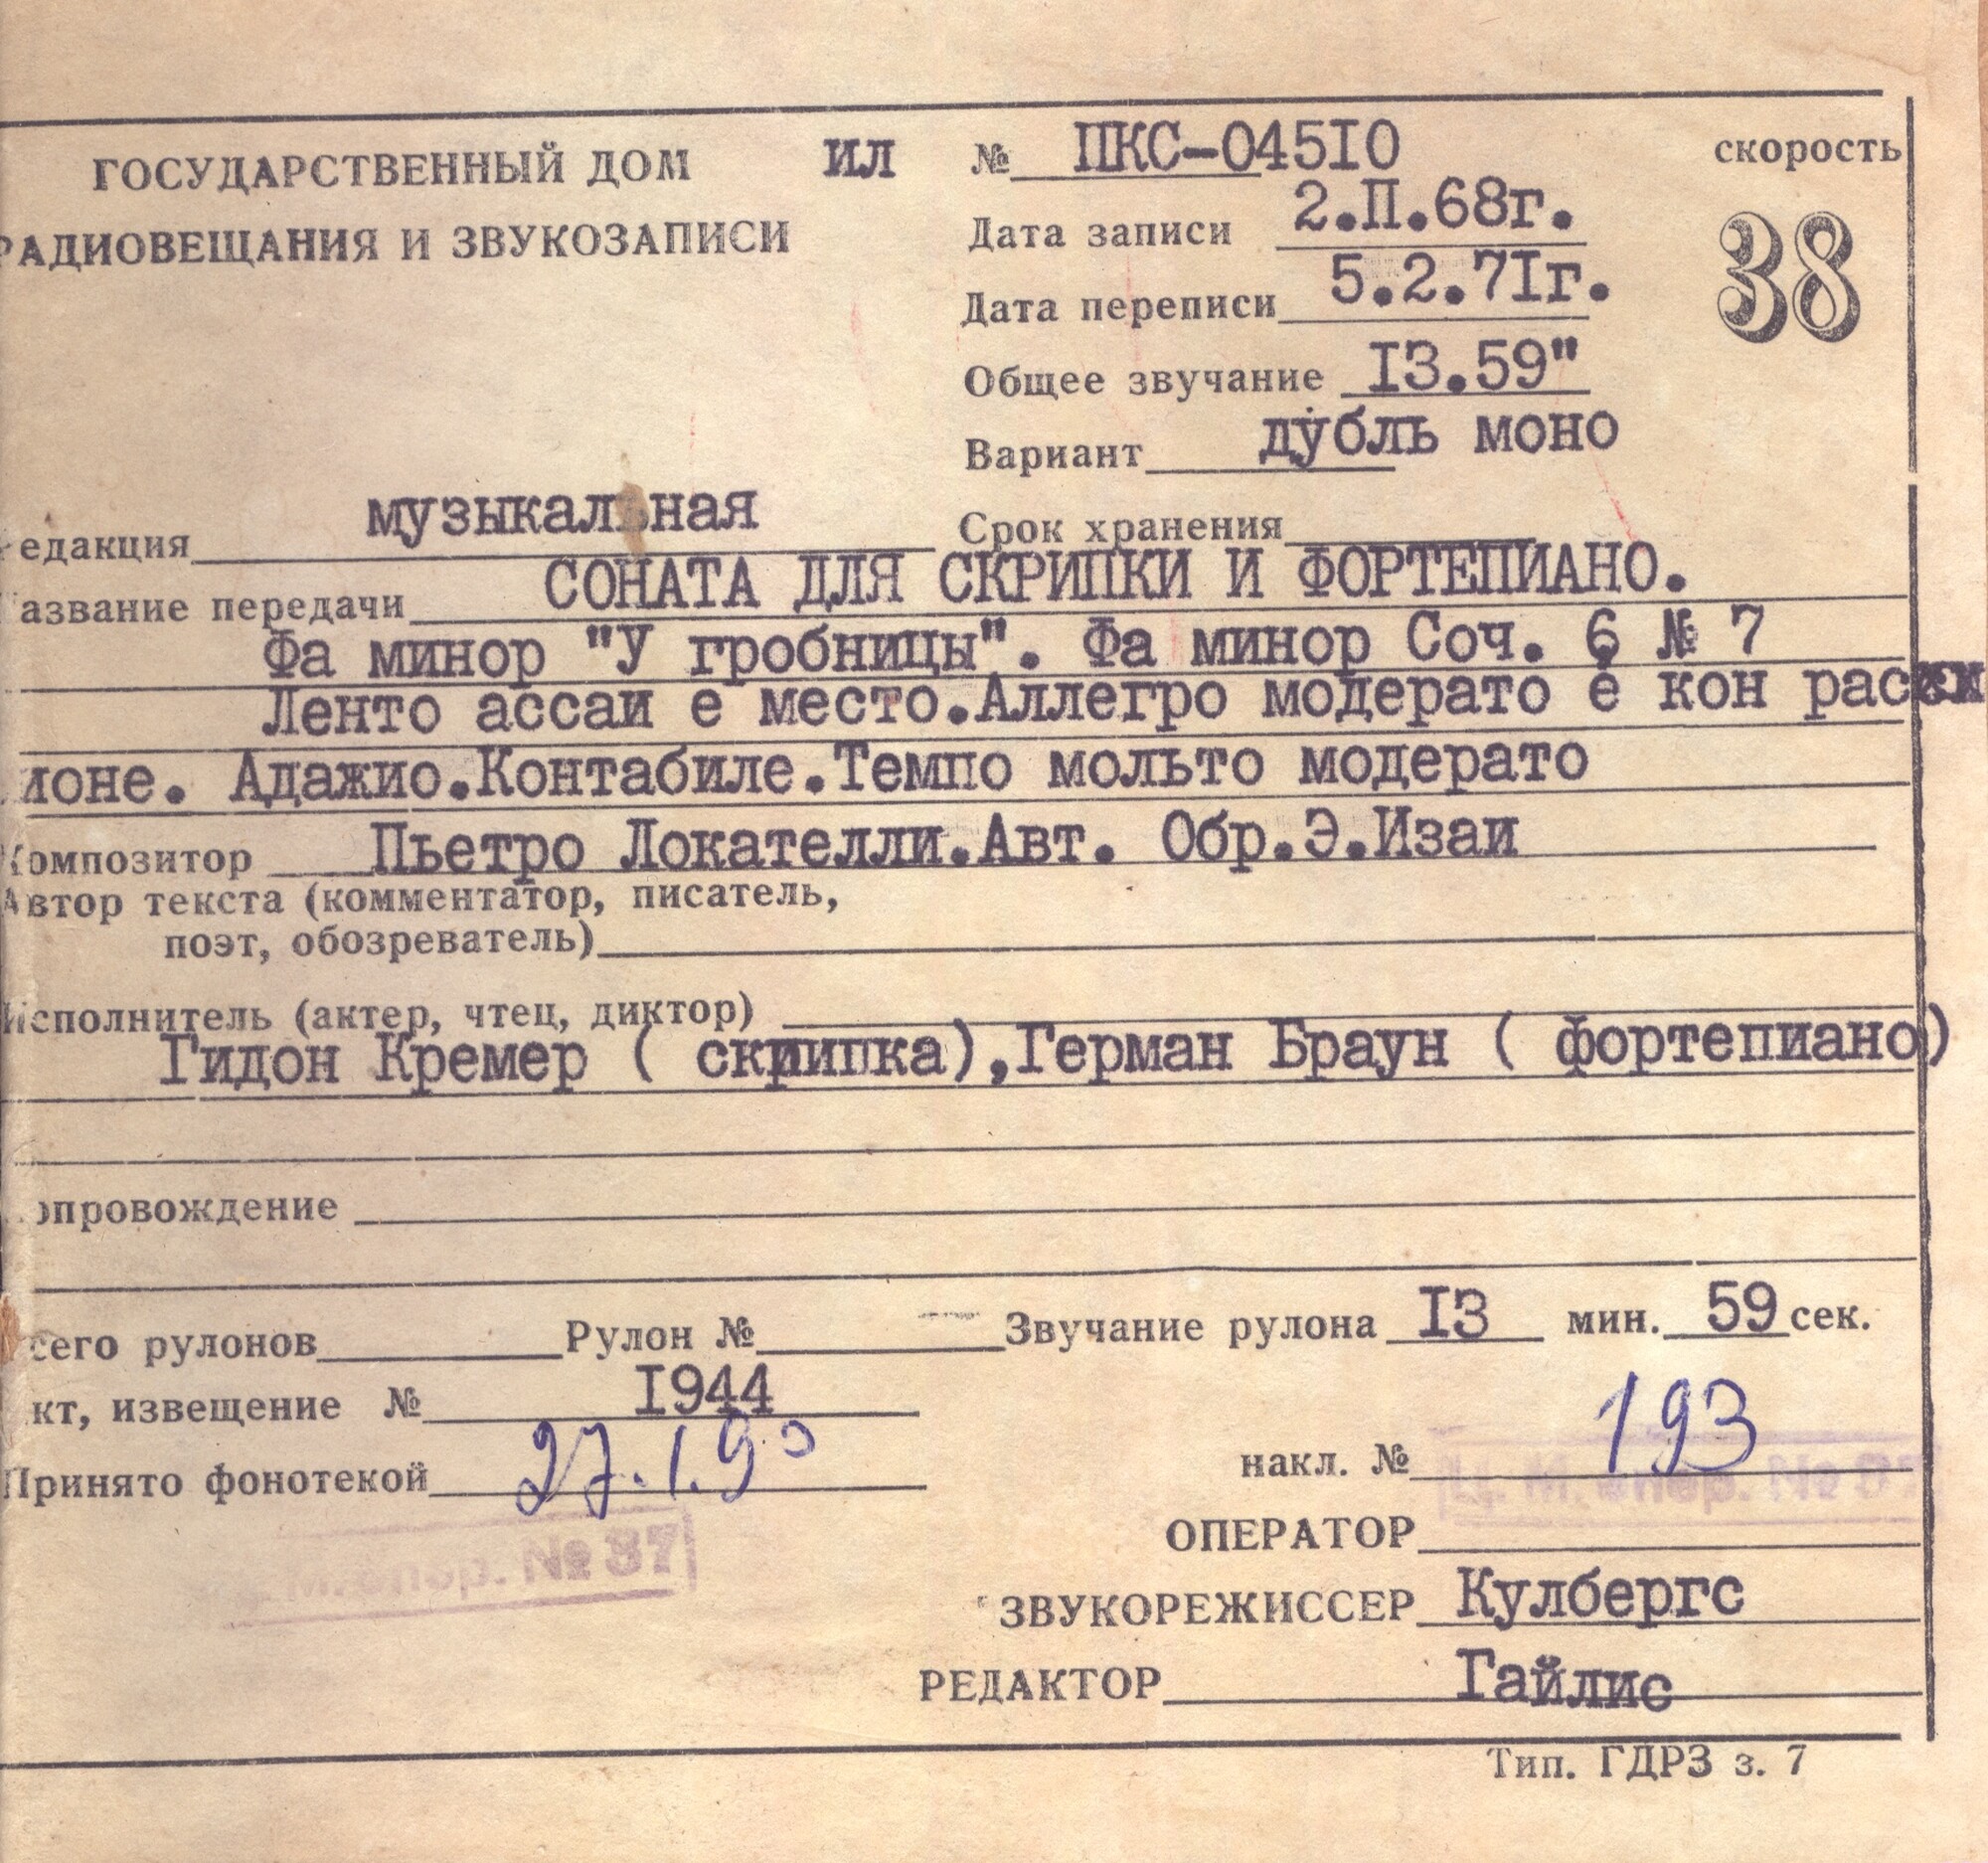 ГОСУДАРСТВЕННЫЙ ДОМ ИЛ № ПКС-045I0 скорость
РАДИОВЕЩАНИЯ И ЗВУКОЗАПИСИ
Дата записи 2.П.68г.
38
Дата переписи 5.2.7Iг.
Общее звучание I3.59"
Вариант дубль моно
едакция музыкальная Срок хранения
азвание передачи СОНАТА ДЛЯ СКРИПКИ И ФОРТЕПИАНО.
Фа минор "У гробницы". Фа минор Соч. 6 № 7
Ленто ассаи е место.Аллегро модерато е кон
ионе. Адажио.Контабиле.Темпо мольто модерато
Композитор Пьетро Локателли.Авт. Обр.Э.Изаи
Автор текста (комментатор, писатель,
поэт, обозреватель)
Исполнитель (актер, чтец, диктор)
Гидон Кремер ( скрипка),Герман Браун ( фортепиано)
опровождение
сего рулонов Рулон № Звучание рулона I3 мин. 59 сек.
кт, извещение № I944
Принято фонотекой 27.1.90
накл. № 193
Ц. М. опер. № 37
М. опер. № 37
ОПЕРАТОР
ЗВУКОРЕЖИССЕР Кулбергс
РЕДАКТОР Гайлис
Тип. ГДРЗ з. 7